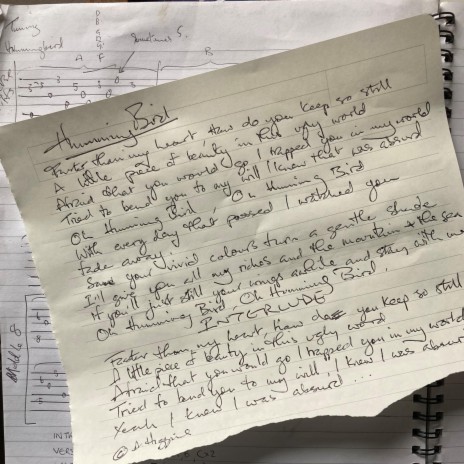 Tuning
Hummingbird
Sometimes 5.
A
F
B
Humming Bird
Faster than my heart, How do you keep so still
A little piece of beauty in this ugly world
Afraid that you would go I trapped you in my world
Tried to bend you to my will I knew that was absurd
Oh Humming Bird, Oh Humming Bird
With every day that passed I watched you
fade away.
Saw your vivid colours turn a gentle shade
I'll give you all my riches and the mountain + the sea
If you'll just still your wings awhile and stay with me
Oh Humming Bird Oh Humming Bird,
INTERLUDE
Faster than my heart, how do you keep so still
A little piece of beauty in this ugly word
Afraid that you would go I trapped you in my world
Tried to bend you to my will, I knew I was absurd
Yeah, I knew I was absurd...
© Higgins
Middle 8
INT
VERS